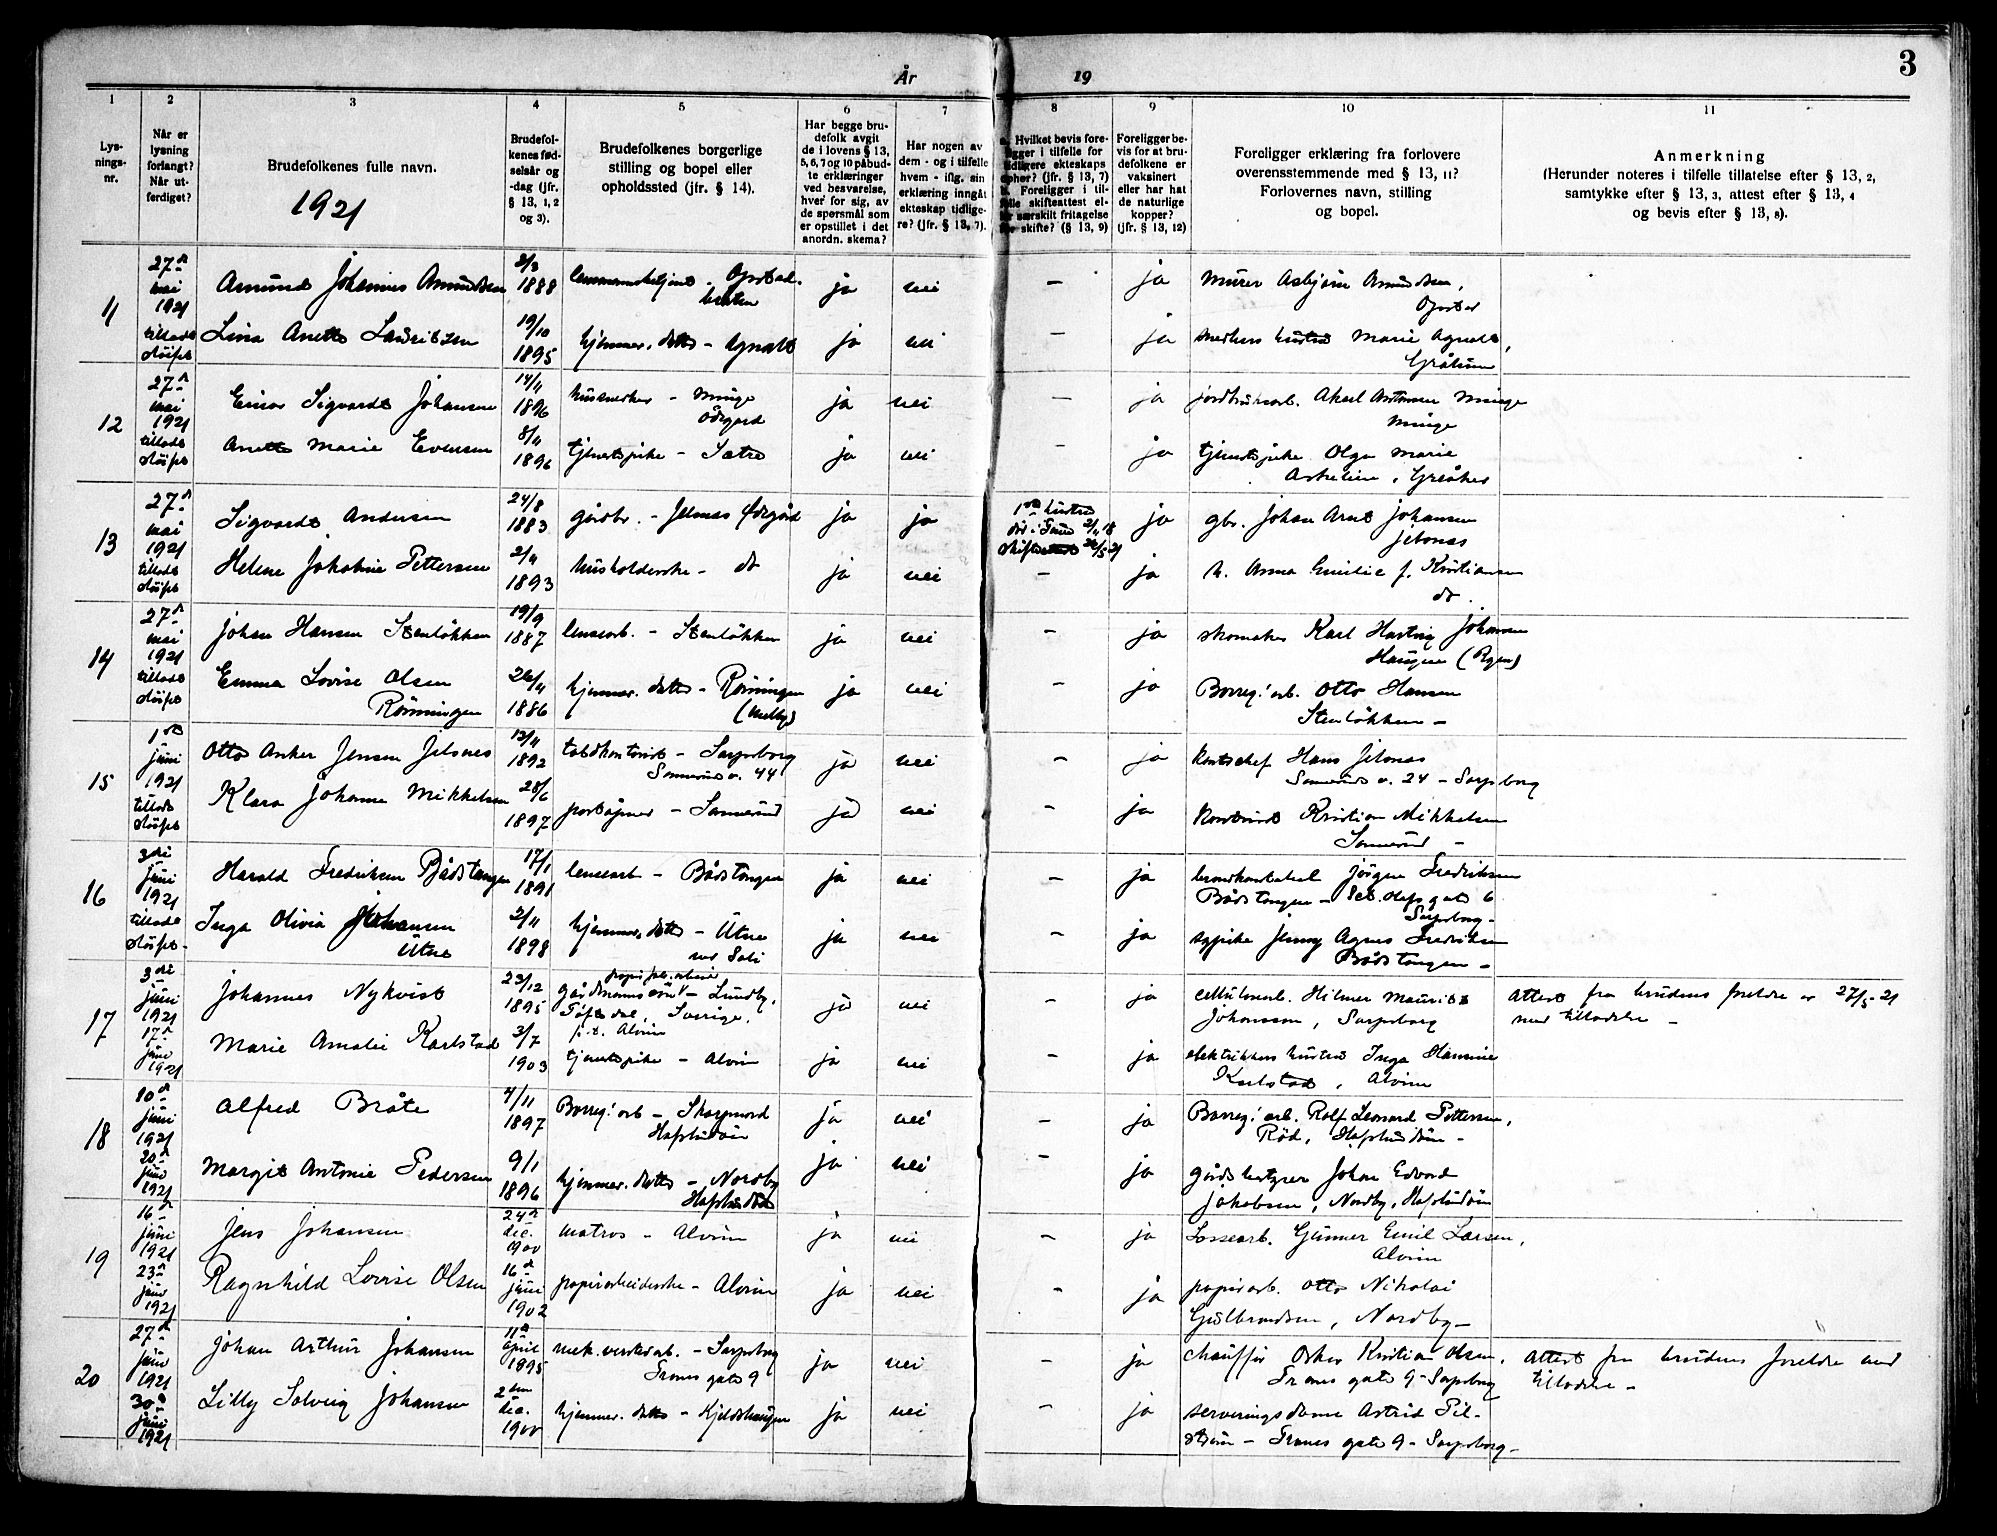 3
År
19
1
2
3
4
5
6
7
8
9
10
11
Lys-
nings-
nr.
Når er
lysning
forlangt?
Når ut-
ferdiget?
Brudefolkenes fulle navn.
1921
Brudefol-
kenes fød-
selsår og
-dag (jfr.
§ 13, 1, 2
og 3).
Brudefolkenes borgerlige
stilling og bopel eller
opholdssted (jfr. § 14).
Har begge bru-
defolk avgit
de i lovens § 13,
5, 6, 7 og 10 påbud-
te erklæringer
ved besvarelse,
hver for sig, av
de spørsmål som
er opstillet i det
anordn. skema?
Har nogen av
dem - og i tilfelle
hvem - iflg. sin
erklæring inngåt
ekteskap tidlige-
re? (jfr. § 13, 7).
Hvilket bevis fore-
ligger i tilfelle for
tidligere ekteskaps
ophør? (jfr. § 13, 7)
Foreligger i til-
felle skifteattest el-
ler særskilt fritagelse
for skifte? (§ 13, 9)
Foreligger be-
vis for at bru-
defolkene er
vaksinert
eller har hat
de naturlige
kopper?
(jfr. § 13, 12)
Foreligger erklæring fra forlovere
overensstemmende med § 13, 11?
Forlovernes navn, stilling
og bopel.
Anmerkning
(Herunder noteres i tilfelle tillatelse efter § 13, 2,
samtykke efter § 13, 3, attest efter § 13, 4
og bevis efter § 13, 8).
11
27de mai 1921
Amund Johannes Amundsen
2/3 1888
ja nei - ja
murer Asbjørn Amundsen,
tilladt
Lina Anette Lauritzen
19/10 1895
hjemmev. datter - Agnalt
ja nei - ja
Marie Agnalt,
Grålum
12
27de mai 1921
Einar Sigvardt Johansen
14/4 1896
husmedhj. - Minge
Ødegård
ja nei - ja
jordbruksarb. Aksel Antonsen Minge
Minge
tilladt
Anette Marie Evensen
8/4 1896
tjenestepike - Sætre
ja nei - ja
tjenestepike Olga Marie
Greåker
13
27de mai 1921
Sigvardt Andersen
24/8 1883
gårdbr. - Jelsnes Ødegård
ja ja
1ste hustru
død i 2/4 18
26/5 21
ja
gbr. Johan Arnt Johansen
Jelsnes
tilladt
Helene Jakobine Pettersen
2/4 1893
husholderske - do
ja nei - ja
h. Anna Emilie f. Kristiansen
do.
14
27de mai 1921
Johan Hansen Stenløkken
19/9 1887
lensearb. - Stenløkken
ja nei - ja
skomaker Karl Hartvig Johansen
Haugen (Rygen)
tilladt
Emma Lovise Olsen
Rønningen
26/4 1886
hjemmev. datter - Rønningen
ja nei - ja
Borreg. arb. Otto Hansen
Stenløkken -
15
1ste juni 1921
Otto Anker Jensen Jelsnes
13/4 1892
- Sarpsborg
v. 44
ja nei - ja
kontorchef Hans Jelsnes
v. 24 - Sarpsborg
tilladt
Klara Johanne Mikkelsen
28/6 1897
- Sannerud
ja nei - ja
Kristian Mikkelsen
Sannerud -
16
3die juni 1921
Harald Fredriksen Bådstangen
17/1 1891
lensearb - Bådstangen
ja nei - ja
brandkonstabel Jørgen Fredriksen
Bådstangen - gate 6
Sarpsborg -
tilladt
Inga Olivia Johansen
Utne
2/4 1898
hjemmev. datter - Utne
ved Soli
ja nei - ja
sypike Jenny Agnes Fredriksen
Bådstangen -
17
3die juni 1921
Johannes Nykvist
23/12 1895
papirfabr. arbeider
gårdmannssøn - Lundby,
Töftedal, Sverige.
p.t. Alvim
ja nei - ja
cellulosearb. Hilmer Mauritz
Johansson, Sarpsborg
Attest fra brudens foreldre av 27/5-21
med tilladelse -
17de juni 1921
Marie Amalie Karlstad
3/7 1903
tjenestepike - Alvim
ja nei - ja
elektrikers hustru Inga Hansine
Karlstad, Alvim
18
10de juni 1921
Alfred Bråte
4/11 1897
Borreg. arb -
Hafslundsøen
ja nei - ja
Borreg. arb. Rolf Leonard Pettersen,
Rød, Hafslundsøen -
20de juni 1921
Margit Antonie Pedersen
9/1 1896
hjemmev. datter - Nordby
Hafslundsøen
ja nei - ja
gårdbestyrer Johan Edvard
Jakobsen, Nordby, Hafslundsøen
19
16de juni 1921
Jens Johansen
24de dec. 1900
matros - Alvim
ja nei - ja
Lossearb. Gunnar Emil Larsen,
Alvim
23de juni 1921
Ragnhild Lovise Olsen
16de juni 1902
papirarbeiderske - Alvim
ja nei - ja
papirarb. Otto Nikolai
Gulbrandsen, Nordby -
20
27de juni 1921
Johan Arthur Johansen
11te april 1895
mek. verkstedarb. - Sarpsborg
gate 9
ja nei - ja
chauffør Oskar Kristian Olsen,
gate 9 - Sarpsborg
Attest fra brudens foreldre med
tilladelse -
30de juni 1921
Lilly Solveig Johansen
2den dec. 1900
hjemmev. datter - Kjeldshaugen
ja nei - ja
serveringsdame Astrid Pil-
strøm - gate 9 - Sarpsborg -